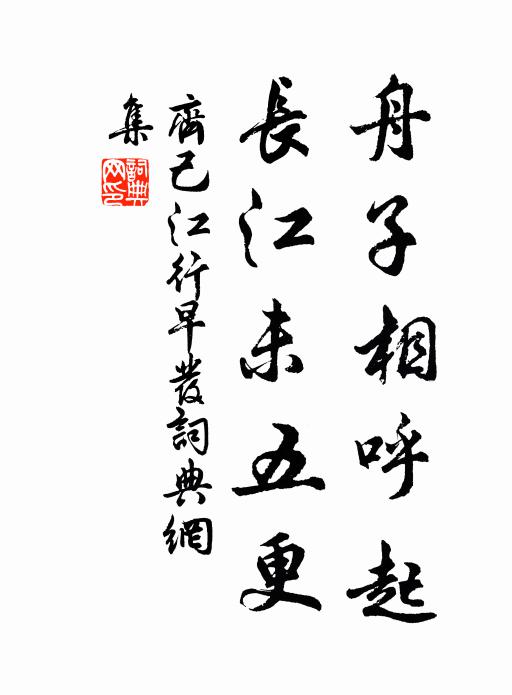 舟子相呼起
長江未五更
齊己江行早發詞典網
集
詞典網印